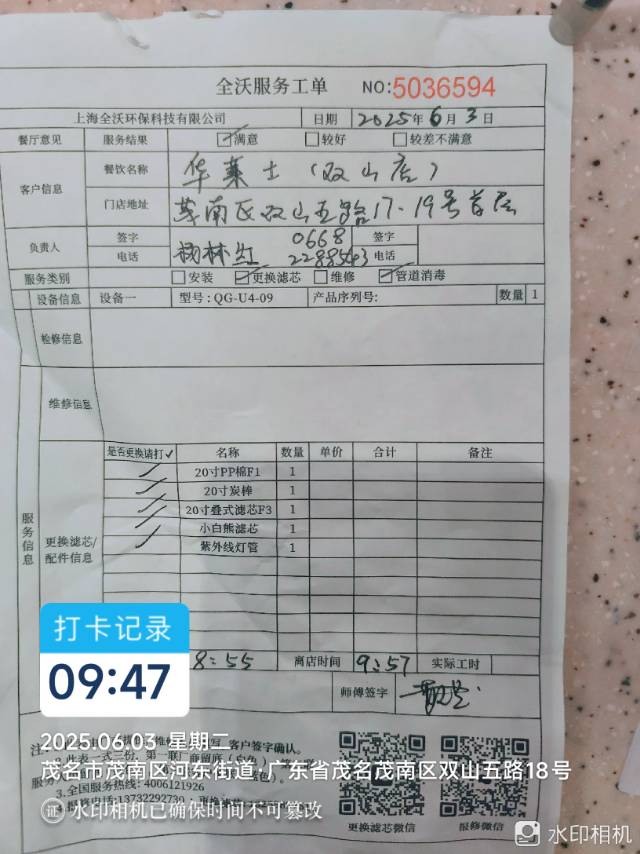 全沃服务工单 NO:5036594
上海全沃环保科技有限公司 日期 2025年6月3日
餐厅意见 服务结果 满意 较好 较差不满意
客户信息 餐饮名称 华莱士(双山店)
门店地址 茂南区双山五路17-19号首层
负责人 签字 电话 杨林红 0668 2288543 签字 电话
服务类别 安装 更换滤芯 维修 管道消毒
设备信息 设备一 型号:QG-U4-09 产品序列号: 数量 1
检修信息
维修信息
服务信息
更换滤芯/配件信息
是否更换请打✓ 名称 数量 单价 合计 备注
20寸PP棉F1 1
20寸炭棒 1
20寸叠式滤芯F3 1
小白熊滤芯 1
紫外线灯管 1
8:55 离店时间 9:57 实际工时
师傅签字
打卡记录
09:47
2025.06.03 星期二
茂名市茂南区河东街道,广东省茂名茂南区双山五路18号
水印相机已确保时间不可篡改
客户签字确认。
3.全国服务热线:4006121926
13732292730
更换滤芯微信 报修微信
水印相机